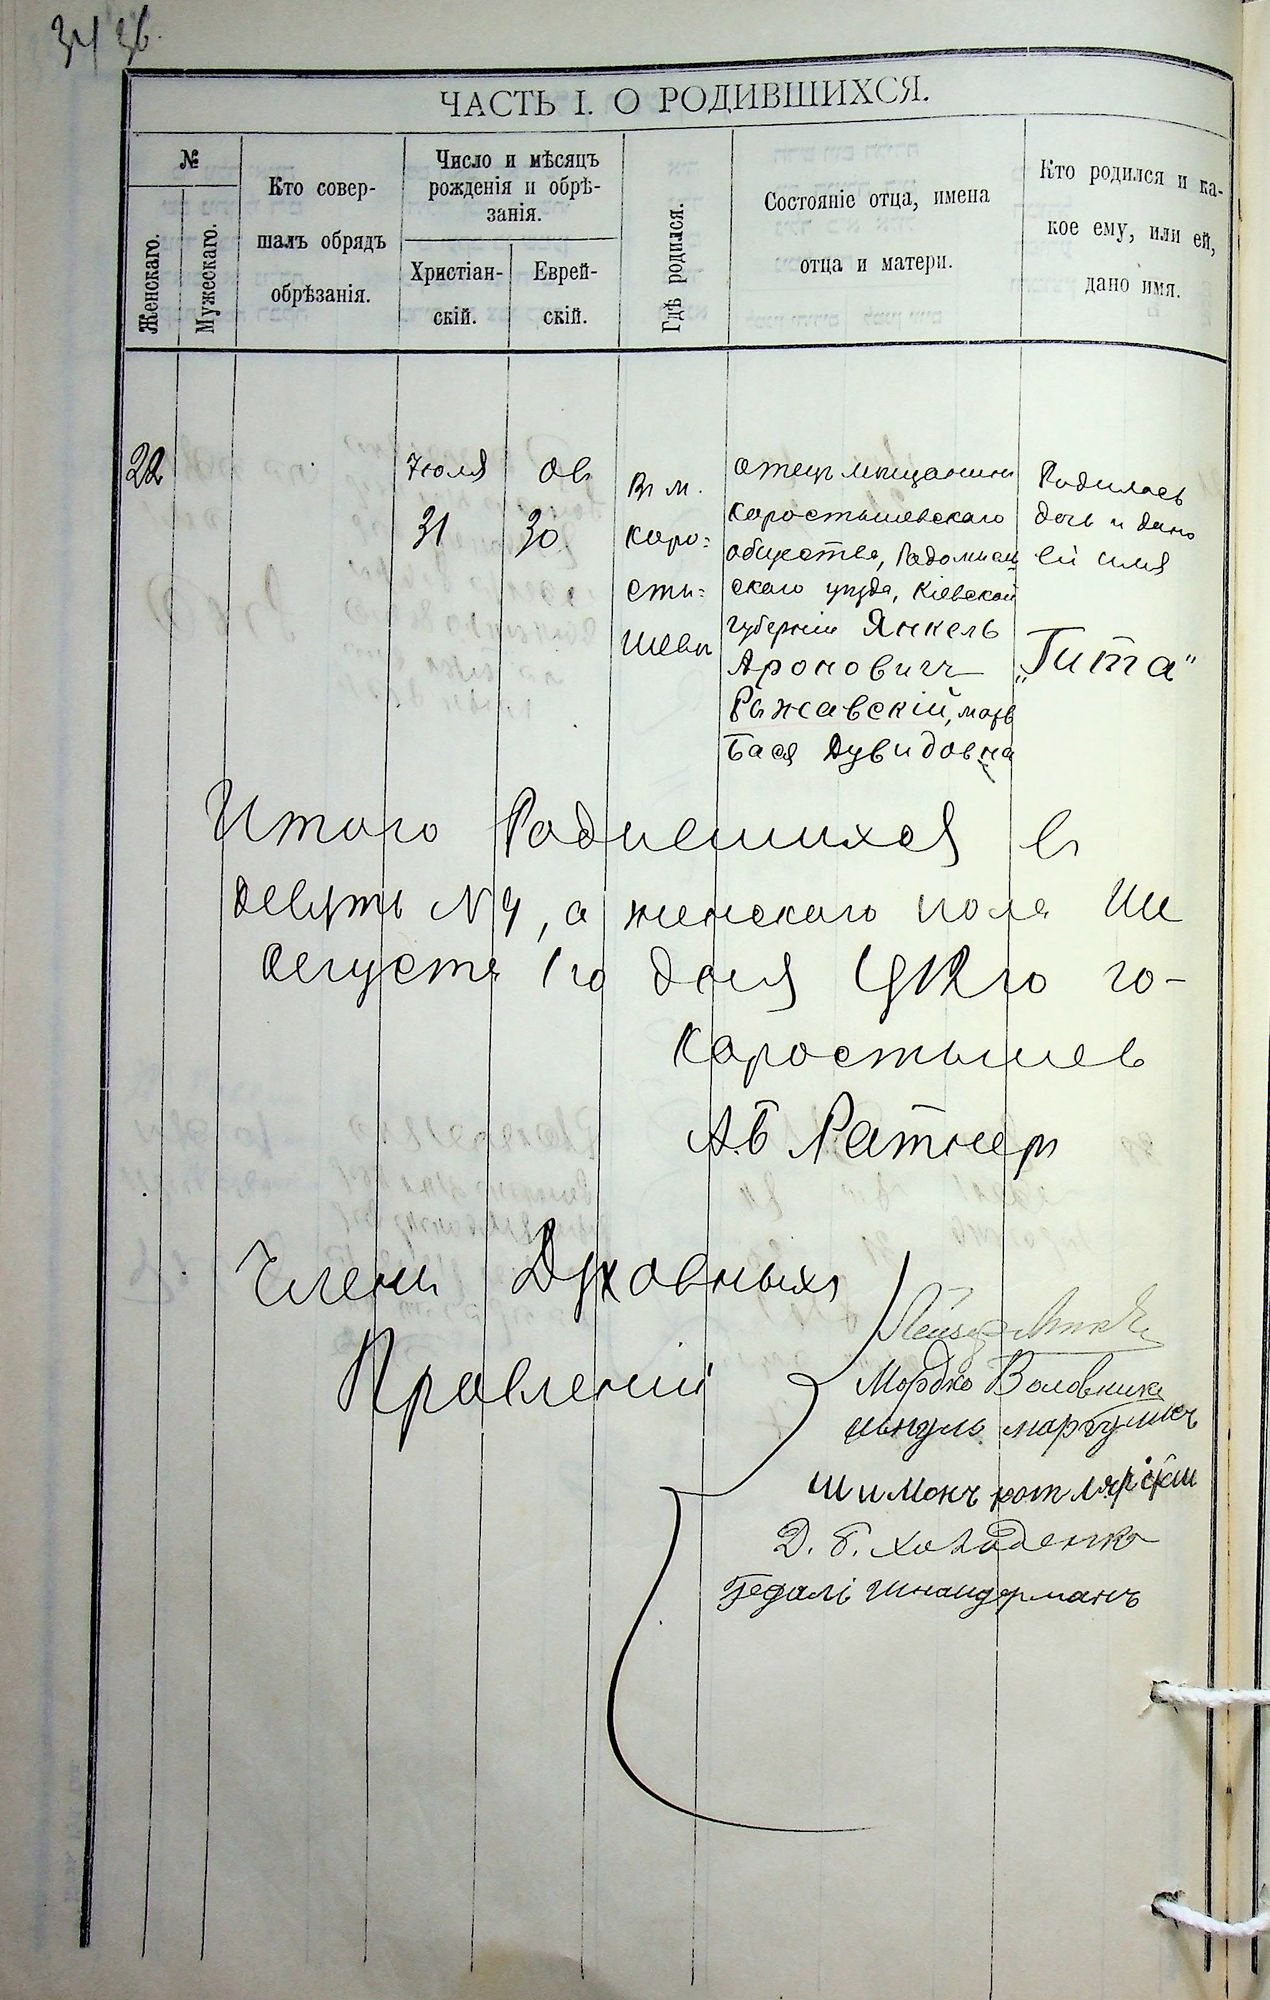 34 36.
ЧАСТЬ I. О РОДИВШИХСЯ.
№
Женскаго.
Мужескаго.
Кто совер-
шалъ обрядъ
обрѣзанія.
Число и мѣсяцъ
рожденія и обрѣ-
занія.
Христіан-
скій.
Еврей-
скій.
Гдѣ родился.
Состояніе отца, имена
отца и матери.
Кто родился и ка-
кое ему, или ей,
дано имя.
22
Іюля
31
Ов
30
Въ м.
Коро=
сты=
шевъ
Отецъ мѣщанинъ
Коростышевскаго
общества, Радомысл
скаго уѣзда, Кіевской
губерніи Янкель
Ароновичъ
Ржавскій, мать
Бася Дувидовна
Родилась
дочь и дано
ей имя
„Гита"
Итого Родившихся въ
девять N 9, а женскаго пола
Августа 1го дня го-
Коростышев
А.Б Ратнеръ
Члени Духовныхъ
Правленій
Мордко Воловникъ
маргулисъ
Шимонъ котлярскій
Д. Б. Ходаденко
Гедалі Шнайдерманъ